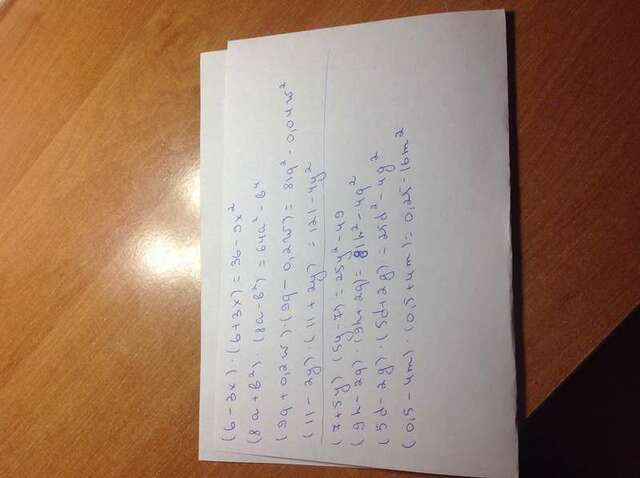 (6-3x)·(6+3x)=36-9x²
(8a+b²)·(8a-b²)=64a²-b⁴
(9q+0,2w)·(9q-0,2w)=81q²-0,04w²
(11-2y)·(11+2y)=121-4y²
(7+5y)(5y-7)=25y²-49
(9h-2q)·(9h+2q)=81h²-4q²
(5d-2g)·(5d+2g)=25d²-4g²
(0,5-4m)·(0,5+4m)=0,25-16m²